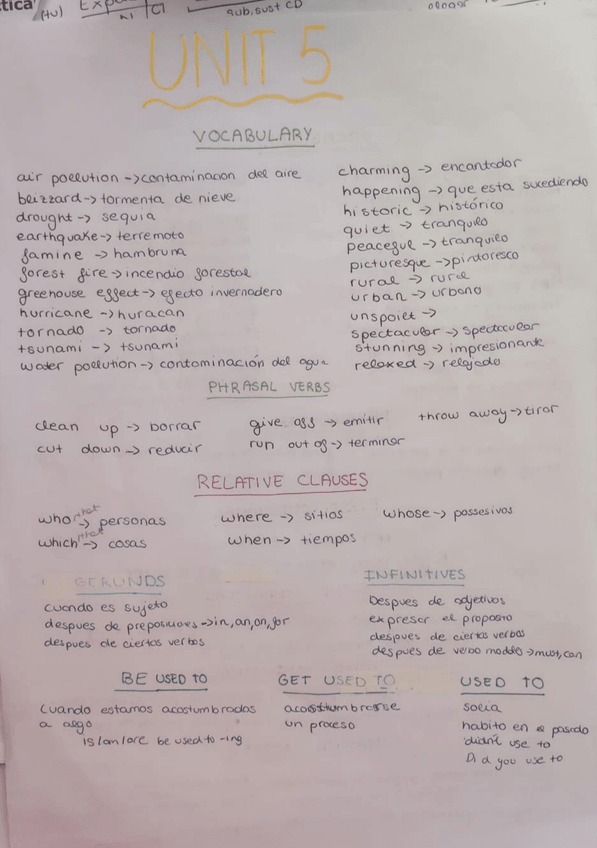 tica
(HV) Exp
sub, sust CD
UNIT 5
VOCABULARY
air pollution -> contaminacion del aire
blizzard -> tormenta de nieve
drought -> sequia
earthquake -> terremoto
famine -> hambruna
forest fire -> incendio forestal
greenhouse effect -> efecto invernadero
hurricane -> huracan
tornado -> tornado
tsunami -> tsunami
water pollution -> contaminación del agua
charming -> encantador
happening -> que esta sucediendo
historic -> histórico
quiet -> tranquilo
peaceful -> tranquilo
picturesque -> pintoresco
rural -> rural
urban -> urbano
unspoilt ->
spectacular -> spectacular
stunning -> impresionante
relaxed -> relajado
PHRASAL VERBS
clean up -> borrar
give off -> emitir
throw away -> tirar
cut down -> reducir
run out of -> terminar
RELATIVE CLAUSES
who that -> personas
where -> sitios
whose -> possesivos
which that -> cosas
when -> tiempos
GERUNDS
cuando es sujeto
despues de preposiciones -> in, an, on, for
despues de ciertos verbos
INFINITIVES
Despues de adjetivos
expresar el proposito
despues de ciertos verbos
despues de verbo modals -> must, can
BE USED TO
cuando estamos acostumbrados
a algo
is/am/are be used to -ing
GET USED TO
acostumbrarse
un proceso
USED TO
solia
habito en el pasado
didn't use to
Did you use to